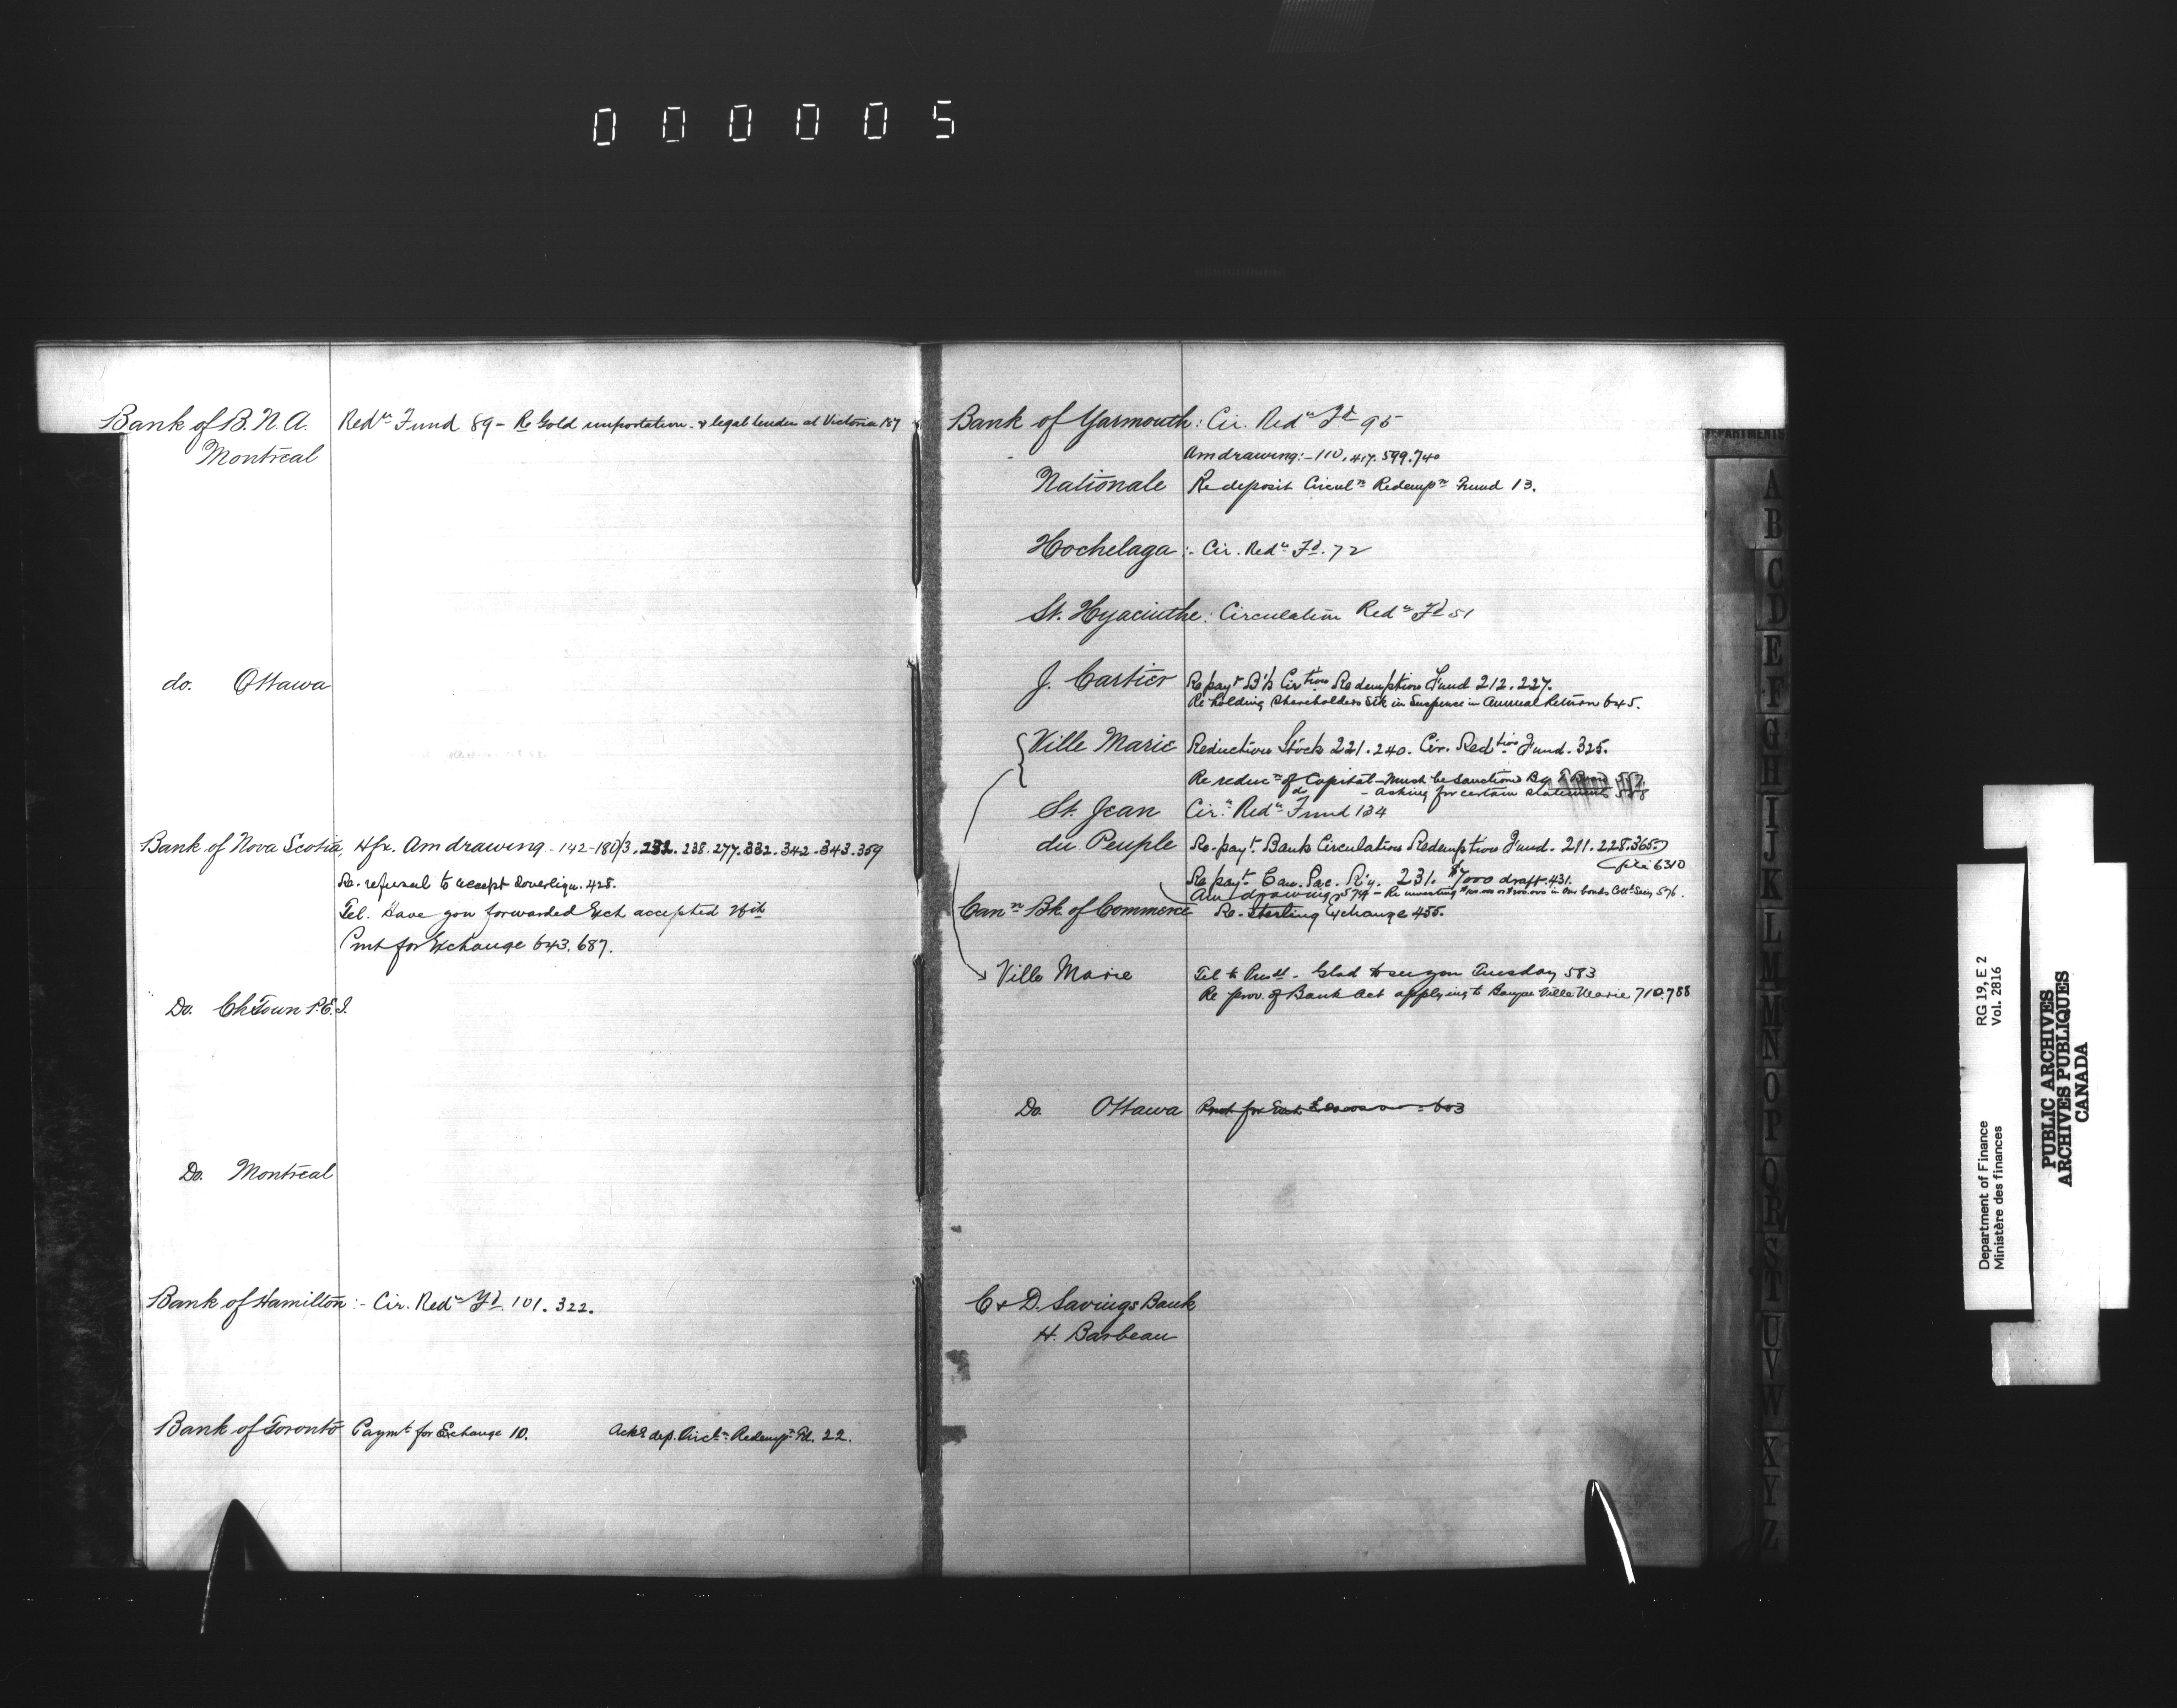 000005
Bank of B.N.A. Redn Fund 89 - Re Gold importation & legal tender at Victoria 187
Montreal
do. Ottawa
Bank of Nova Scotia, Hfx. Am drawing - 142-180/3. 232. 238. 277. 332. 342. 343. 359
Re. refusal to accept Sovereigns. 428.
Tel. Have you forwarded Exch accepted
Pmt for Exchange 643. 687.
Do. ChTown P.E.I.
Do. Montreal
Bank of Hamilton :- Cir. Redn Fd 101. 322.
Bank of Toronto Paymt for Exchange 10. Ackg dep. Circln Redempn Fd. 22.
Bank of Yarmouth: Cir. Redn Fd 95
Am drawing:- 110. 417. 599. 740
Nationale Re deposit Circuln Redempn Fund 13.
Hochelaga :- Cir. Redn Fd. 72
St. Hyacinthe: Circulation Redn Fd 51
J. Cartier Re payt B'k Cirtion Redemption Fund 212. 227.
Re holding Shareholders Stk in Suspense in Annual Return 645.
Ville Marie Reduction Stock 221. 240. Cir. Redtion Fund. 325.
Re reducn of Capital - Must be sanctioned By
do - asking for certain statements
St. Jean Cirn Redn Fund 134
du Peuple Re-payt Bank Circulation Redemption Fund. 211. 228. 365.
file 6310
Re payt Can. Pac. R'y. 231. $7000 draft. 431.
Am drawing 574 - Re investing
Cann Bk. of Commerce Re-sterling Exchange 455.
Ville Marie Tel to Presdt - Glad to see you Tuesday 583
Re prov. of Bank Act applying to Banque Ville Marie 710. 788
Do Ottawa Pmt. for Exch. 603
C & D. Savings Bank
H. Barbeau
DEPARTMENTS
A
B
C
D
E
F
G
H
I
J
K
L
M
N
O
P
Q
R
S
T
U
V
W
X
Y
Z
RG 19, E 2
Vol. 2816
Department of Finance
Ministère des finances
PUBLIC ARCHIVES
ARCHIVES PUBLIQUES
CANADA